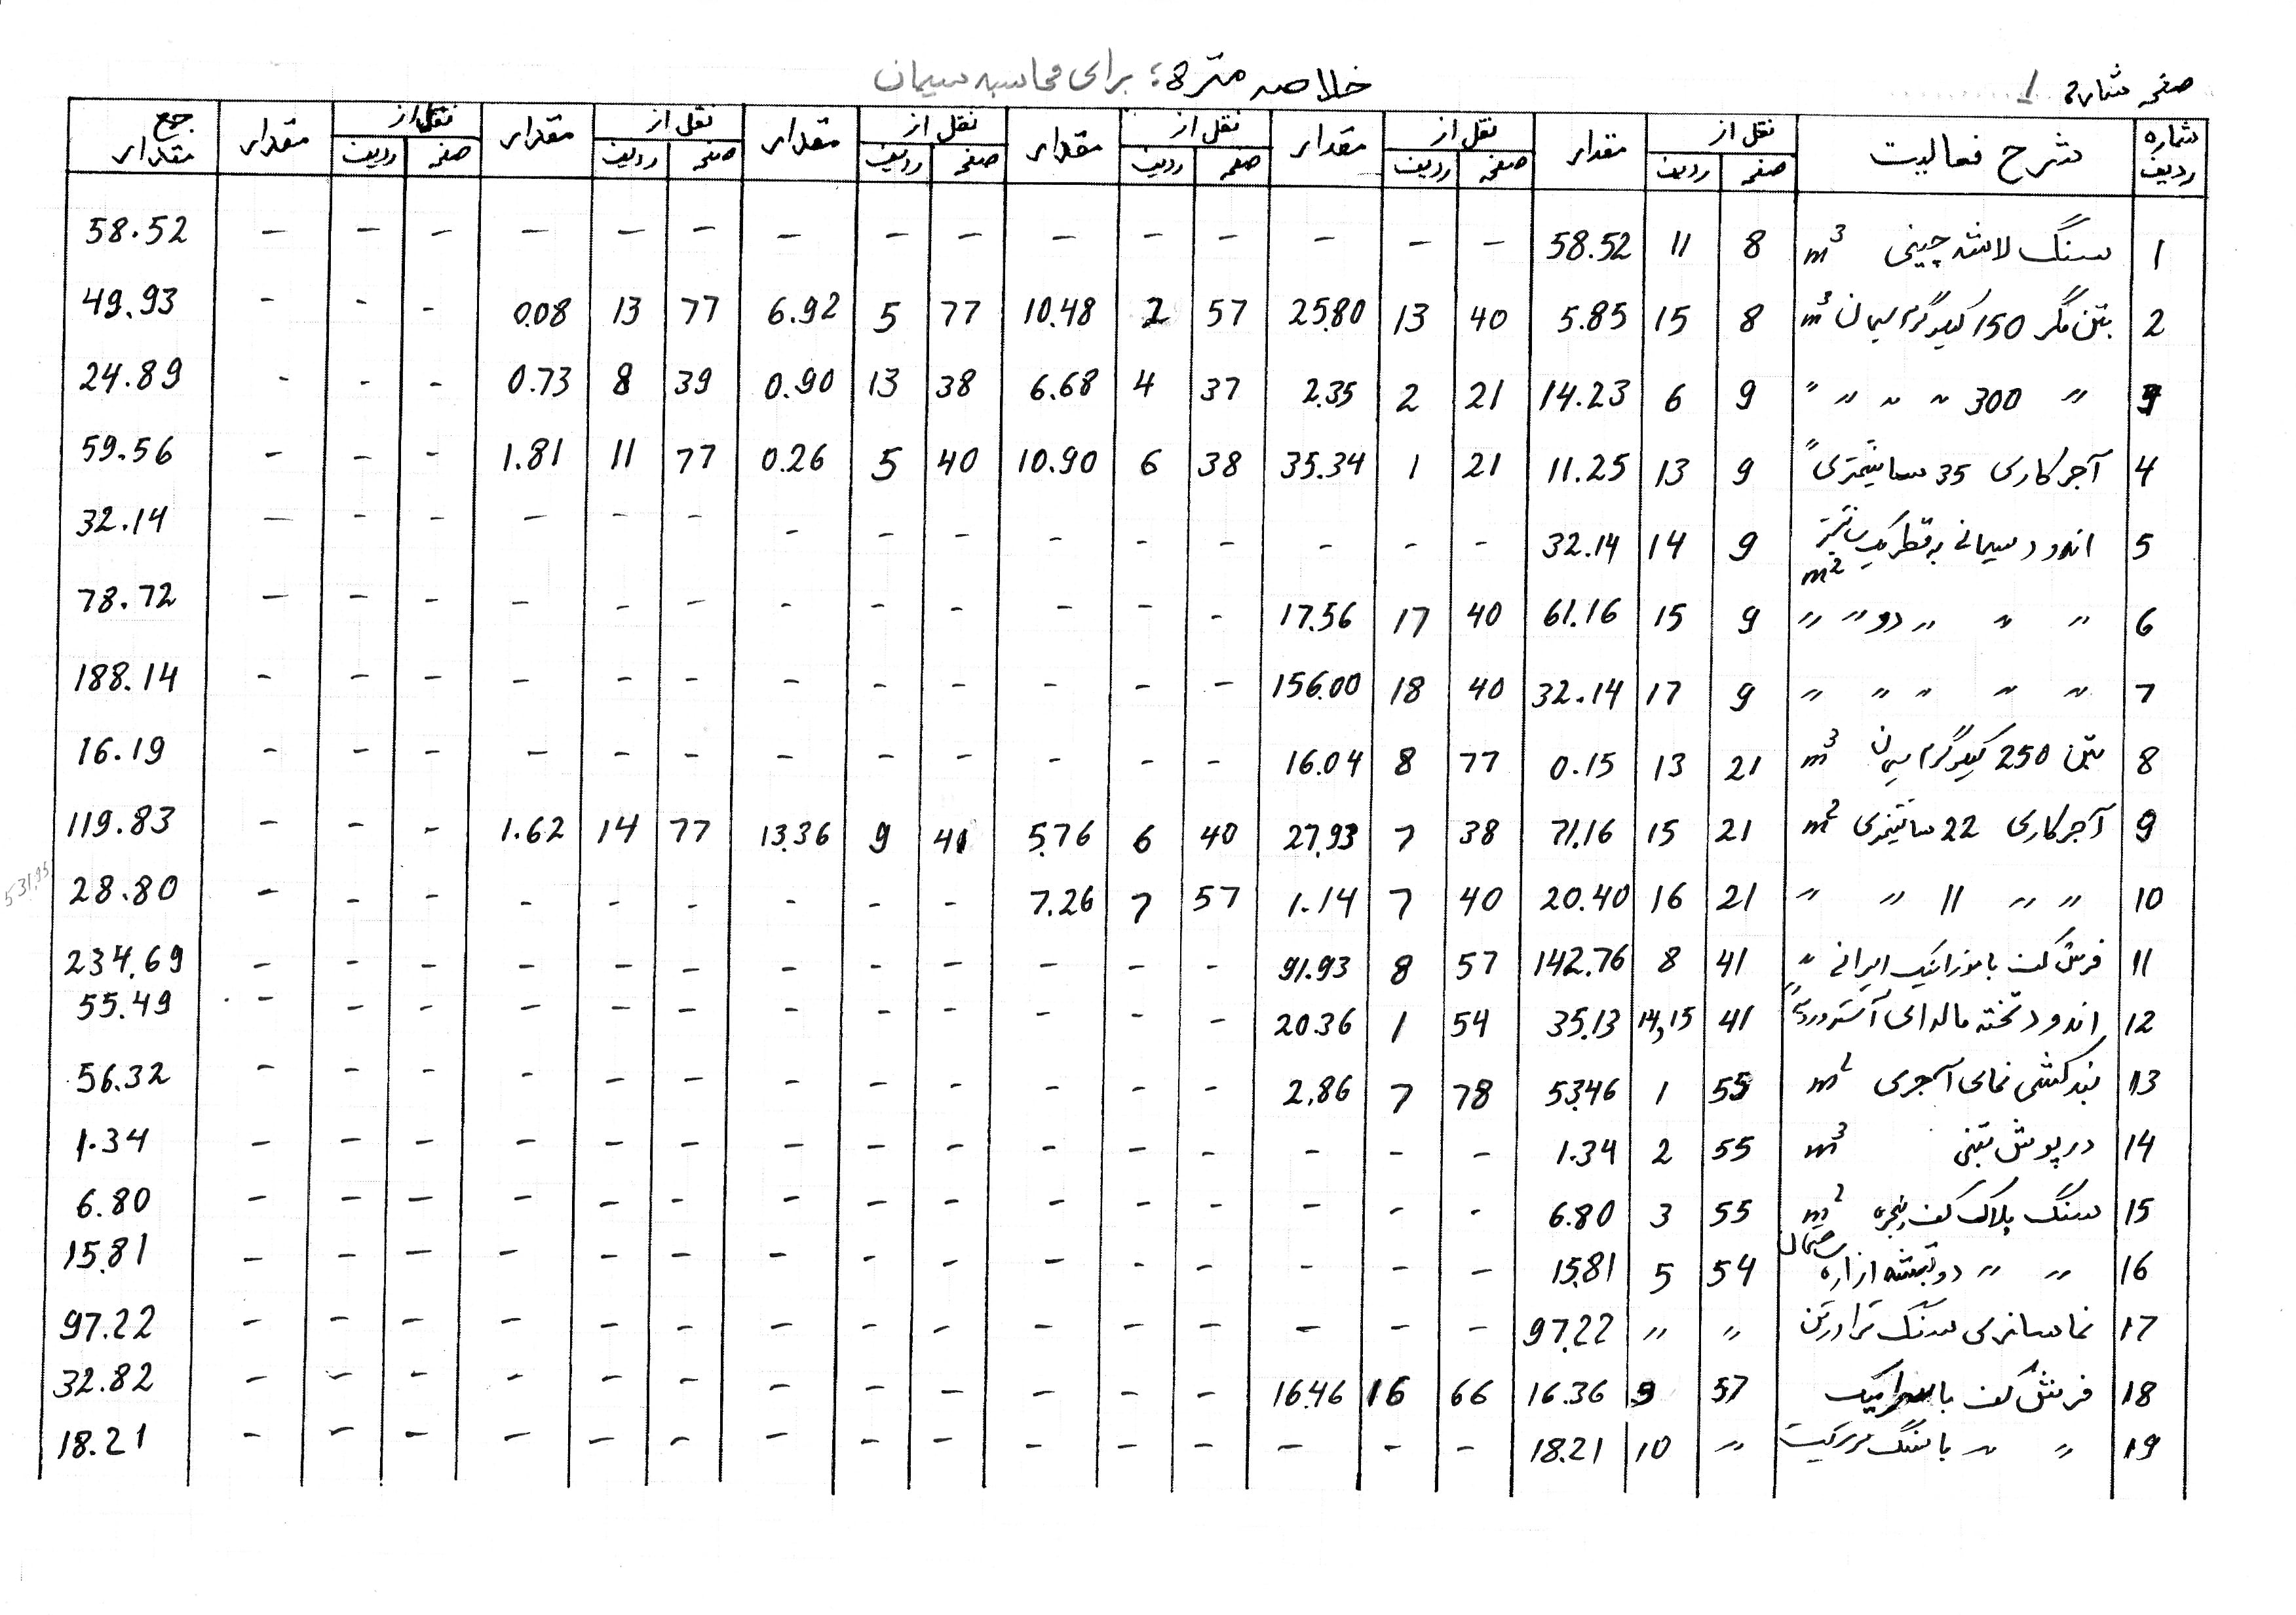 صفحه شماره 1
خلاصه متره: برای محاسبه سیمان
شماره ردیف | شرح فعالیت | نقل از صفحه | ردیف | مقدار | نقل از صفحه | ردیف | مقدار | نقل از صفحه | ردیف | مقدار | نقل از صفحه | ردیف | مقدار | نقل از صفحه | ردیف | مقدار | نقل از صفحه | ردیف | مقدار | جمع مقدار
1 | سنگ لاشه چینی m³ | 8 | 11 | 58.52 | - | - | - | - | - | - | - | - | - | - | - | - | - | - | - | 58.52
2 | بتن مگر 150 کیلوگرم سیمان m³ | 8 | 15 | 5.85 | 40 | 13 | 25.80 | 57 | 2 | 10.48 | 77 | 5 | 6.92 | 77 | 13 | 0.08 | - | - | - | 49.93
〃 300 〃 〃 〃 〃 | 9 | 6 | 14.23 | 21 | 2 | 2.35 | 37 | 4 | 6.68 | 38 | 13 | 0.90 | 39 | 8 | 0.73 | - | - | - | 24.89
4 | آجرکاری 35 سانتیمتری 〃 | 9 | 13 | 11.25 | 21 | 1 | 35.34 | 38 | 6 | 10.90 | 40 | 5 | 0.26 | 77 | 11 | 1.81 | - | - | - | 59.56
5 | اندود سیمانی به قطر یک سانتیمتر m² | 9 | 14 | 32.14 | - | - | - | - | - | - | - | - | - | - | - | - | - | - | - | 32.14
6 | 〃 〃 〃 دو 〃 〃 | 9 | 15 | 61.16 | 40 | 17 | 17.56 | - | - | - | - | - | - | - | - | - | - | - | - | 78.72
7 | 〃 〃 〃 〃 〃 | 9 | 17 | 32.14 | 40 | 18 | 156.00 | - | - | - | - | - | - | - | - | - | - | - | - | 188.14
8 | بتن 250 کیلوگرم سیمان m³ | 21 | 13 | 0.15 | 77 | 8 | 16.04 | - | - | - | - | - | - | - | - | - | - | - | - | 16.19
9 | آجرکاری 22 سانتیمتری m² | 21 | 15 | 71.16 | 38 | 7 | 27.93 | 40 | 6 | 5.76 | 41 | 9 | 13.36 | 77 | 14 | 1.62 | - | - | - | 119.83
10 | 〃 〃 11 〃 〃 | 21 | 16 | 20.40 | 40 | 7 | 1.14 | 57 | 7 | 7.26 | - | - | - | - | - | - | - | - | - | 28.80
531.95
11 | فرش کف با موزائیک ایرانی 〃 | 41 | 8 | 142.76 | 57 | 8 | 91.93 | - | - | - | - | - | - | - | - | - | - | - | - | 234.69
12 | اندود تخته ماله‌ای 〃 | 41 | 14,15 | 35.13 | 54 | 1 | 20.36 | - | - | - | - | - | - | - | - | - | - | - | - | 55.49
13 | بندکشی نمای آجری m² | 55 | 1 | 53.46 | 78 | 7 | 2.86 | - | - | - | - | - | - | - | - | - | - | - | - | 56.32
14 | درپوش بتنی m³ | 55 | 2 | 1.34 | - | - | - | - | - | - | - | - | - | - | - | - | - | - | - | 1.34
15 | سنگ پلاک کف پنجره m² | 55 | 3 | 6.80 | - | - | - | - | - | - | - | - | - | - | - | - | - | - | - | 6.80
16 | 〃 〃 دو تیشه ازاره ساختمان | 54 | 5 | 15.81 | - | - | - | - | - | - | - | - | - | - | - | - | - | - | - | 15.81
17 | نماسازی سنگ تراورتن | 〃 | 〃 | 97.22 | - | - | - | - | - | - | - | - | - | - | - | - | - | - | - | 97.22
18 | فرش کف با سرامیک | 57 | 9 | 16.36 | 66 | 16 | 16.46 | - | - | - | - | - | - | - | - | - | - | - | - | 32.82
19 | 〃 〃 با سنگ | 〃 | 10 | 18.21 | - | - | - | - | - | - | - | - | - | - | - | - | - | - | - | 18.21